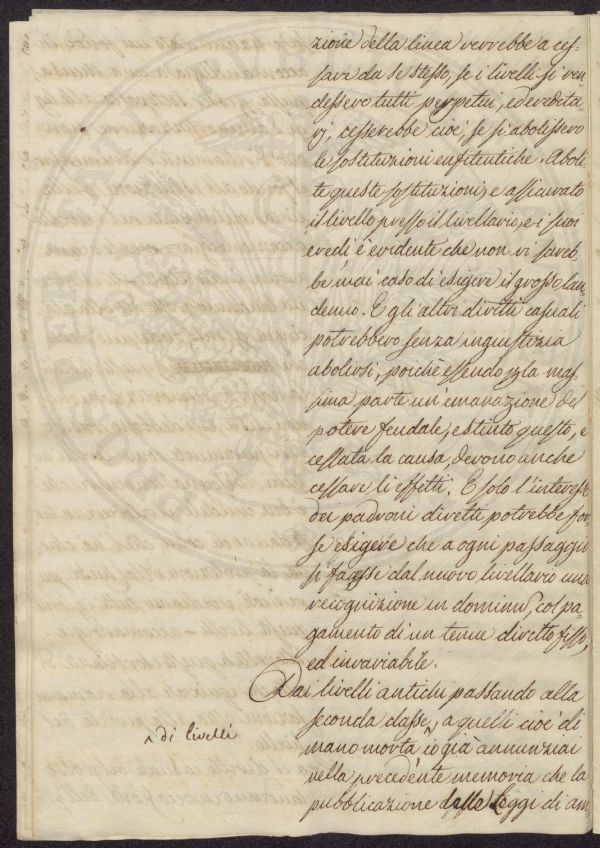 zione della linea verrebbe a ces-
sare da se stesso, se i livelli si ren-
dessero tutti perpetui, ed eredita-
rj, cesserebbe cioè, se si abolissero
le sostituzioni enfiteutiche. Aboli-
te queste sostituzioni, e assicurato
il livello presso il livellario, e i suoi
eredi è evidente che non vi sareb-
be mai caso di esigere il grosso lau-
demio. E gli altri diritti casuali
potrebbero senza ingiustizia
abolirsi, poichè essendo p la mas-
sima parte un'emanazione del
potere feudale, estinto questo, e
cessata la causa, devono anche
cessare li effetti. E solo l'interesse
dei padroni diretti potrebbe for-
se esigere che a ogni passaggio
si facesse dal nuovo livellario una
recognizione in dominū, col pa-
gamento di un tenue diretto fisso,
ed invariabile.
Dai livelli antichi passando alla
seconda classe ^, a quelli cioè di
^ di livelli
mano morta io già annunziai
nella precedente memoria che la
pubblicazione delle Leggi di am-